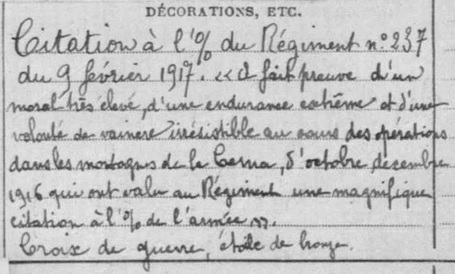 DÉCORATIONS, ETC.
Citation à l'% du Régiment n° 237
du 9 février 1917. « A fait preuve d'un
moral très élevé, d'une endurance extrême et d'une
volonté de vaincre irrésistible au cours des opérations
dans les montagnes de la Cerna, d'octobre, décembre
1916 qui ont valu au Régiment une magnifique
citation à l'% de l'armée ».
Croix de guerre, étoile de bronze.